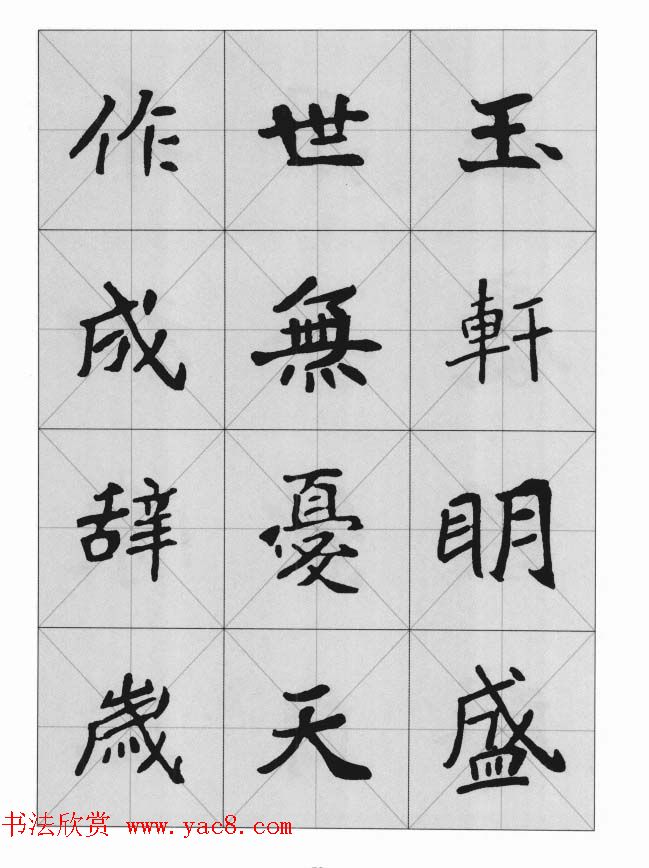 玉軒明盛
世無憂天
作成辞歲
书法欣赏 www.yac8.com